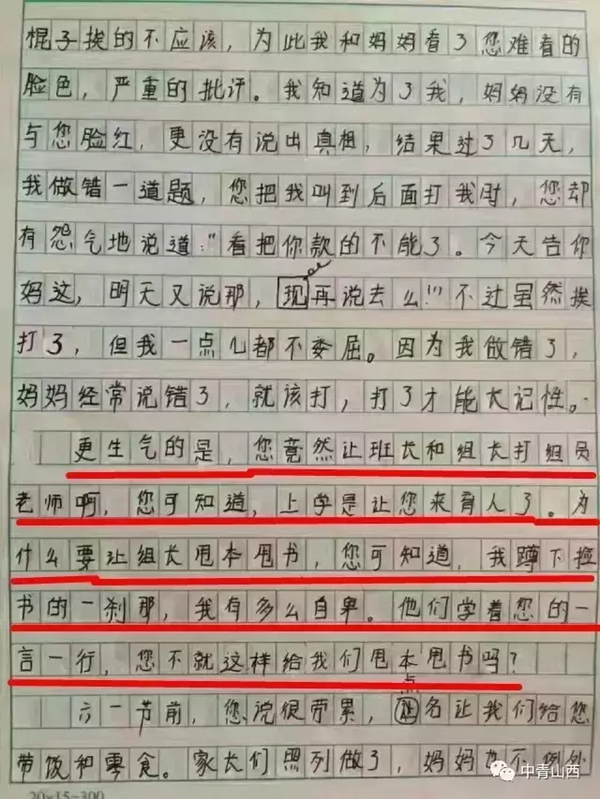 棍子挨的不应该，为此我和妈妈看了您难看的
脸色，严重的批评。我知道为了我，妈妈没有
与您脸红，更没有说出真相，结果过了几天，
我做错一道题，您把我叫到后面打我时，您却
有怨气地说道："看把你款的不能了。今天告你
妈这，明天又说那，现再说去么！"不过虽然挨
打了，但我一点儿都不委屈。因为我做错了，
妈妈经常说错了，就该打，打了才能长记性。
更生气的是，您竟然让班长和组长打组员
老师啊，您可知道，上学是让您来育人了。为
什么要让组长甩本甩书，您可知道，我蹲下捡
书的一刹那，我有多么自卑。他们学着您的一
言一行，您不就这样给我们甩本甩书吗？
点
六一节前，您说很劳累，名让我们给您
带饭和零食。家长们照列做了，妈妈也不例外
20×15=300
中青山西